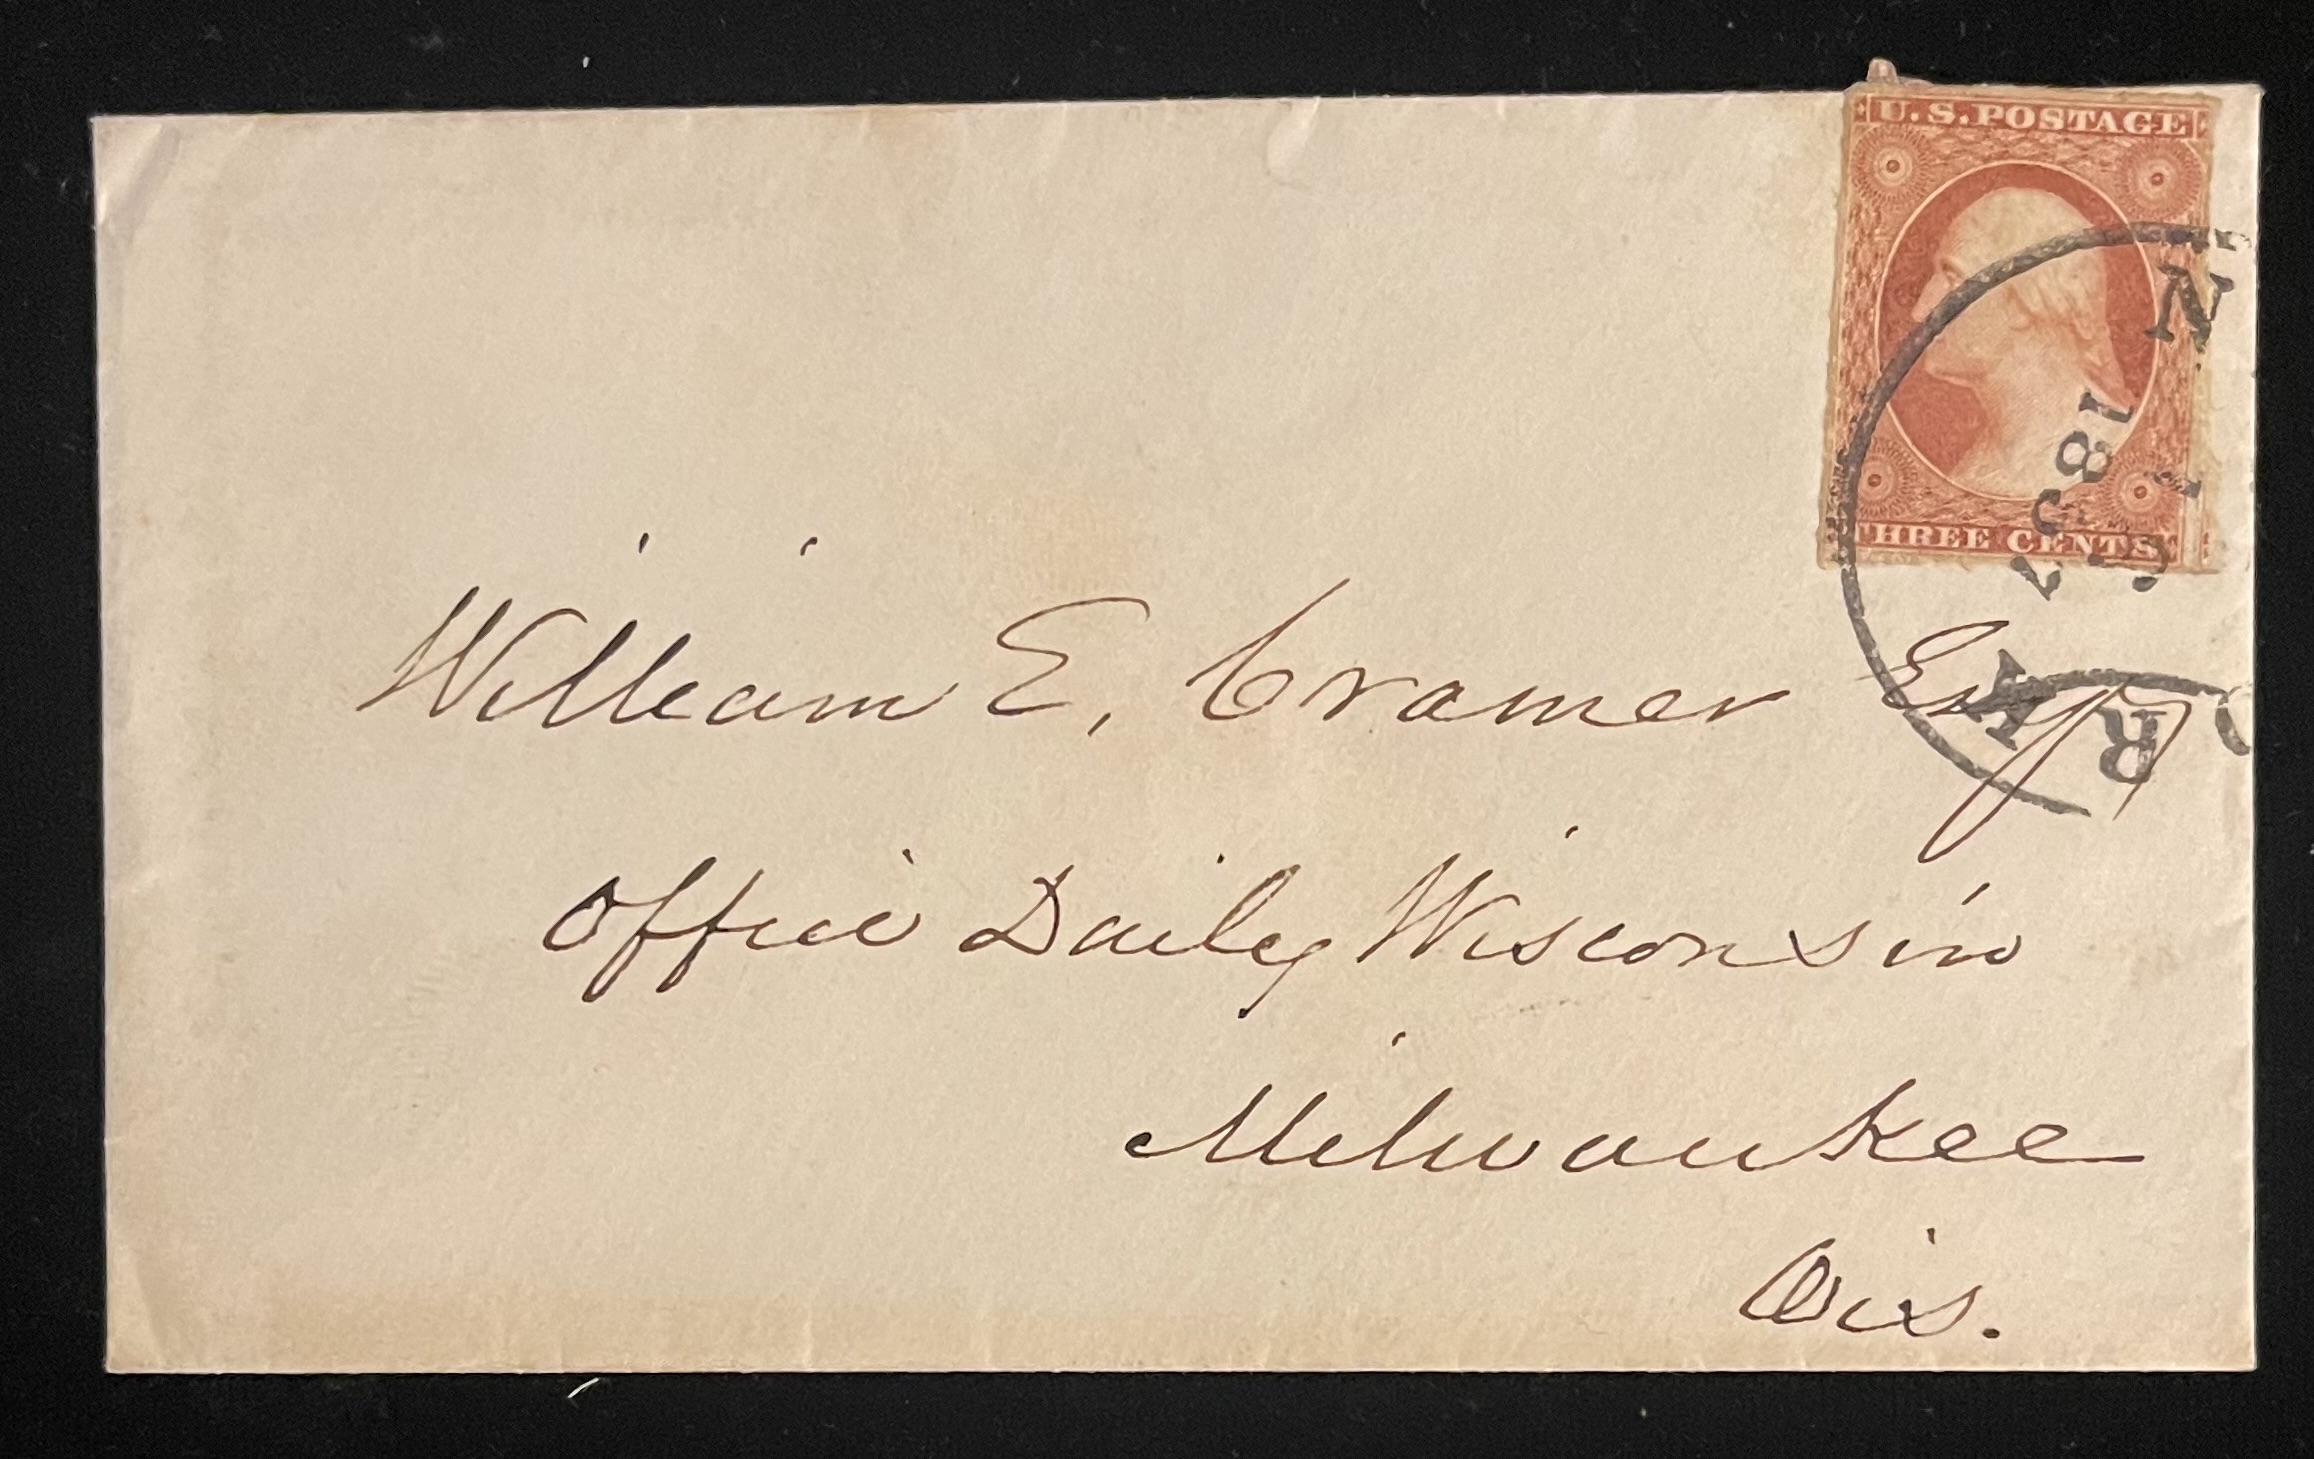 U.S. POSTAGE
THREE CENTS
N
1857
RK
William E. Cramer Esq
Office Daily Wisconsin
Milwaukee
Wis.